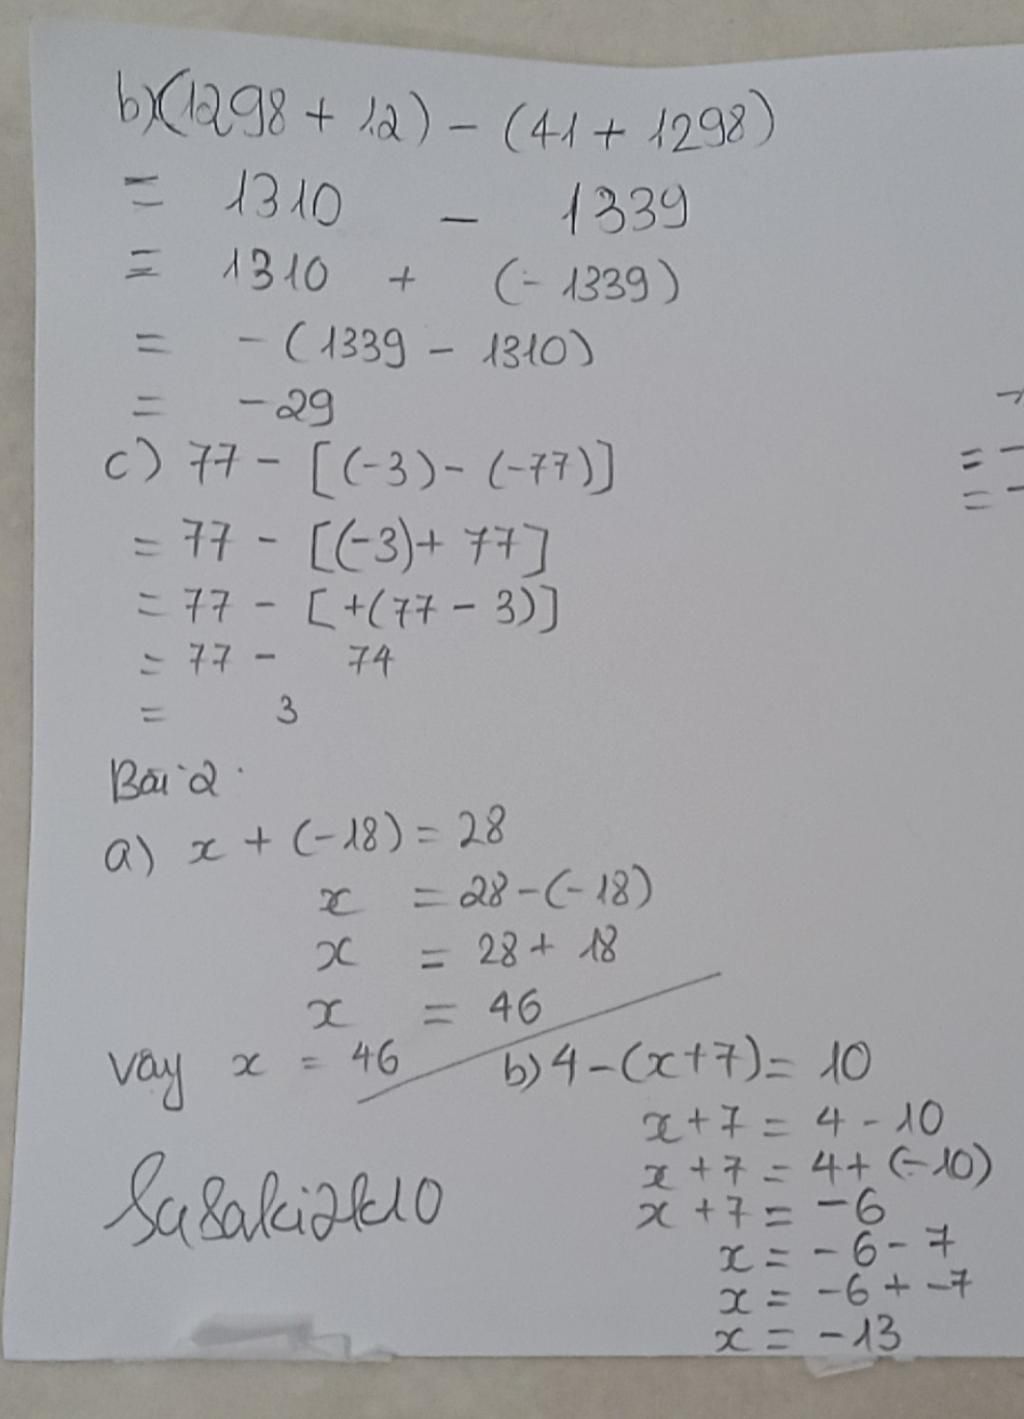 b)(1298 + 12) - (41 + 1298)
= 1310 - 1339
= 1310 + (-1339)
= -(1339 - 1310)
= -29
c) 77 - [(-3) - (-77)]
= 77 - [(-3) + 77]
= 77 - [+(77 - 3)]
= 77 - 74
= 3
Bài 2
a) x + (-18) = 28
x = 28 - (-18)
x = 28 + 18
x = 46
vậy x = 46
b) 4 - (x + 7) = 10
x + 7 = 4 - 10
x + 7 = 4 + (-10)
x + 7 = -6
x = -6 - 7
x = -6 + -7
x = -13
Sasaki2k10